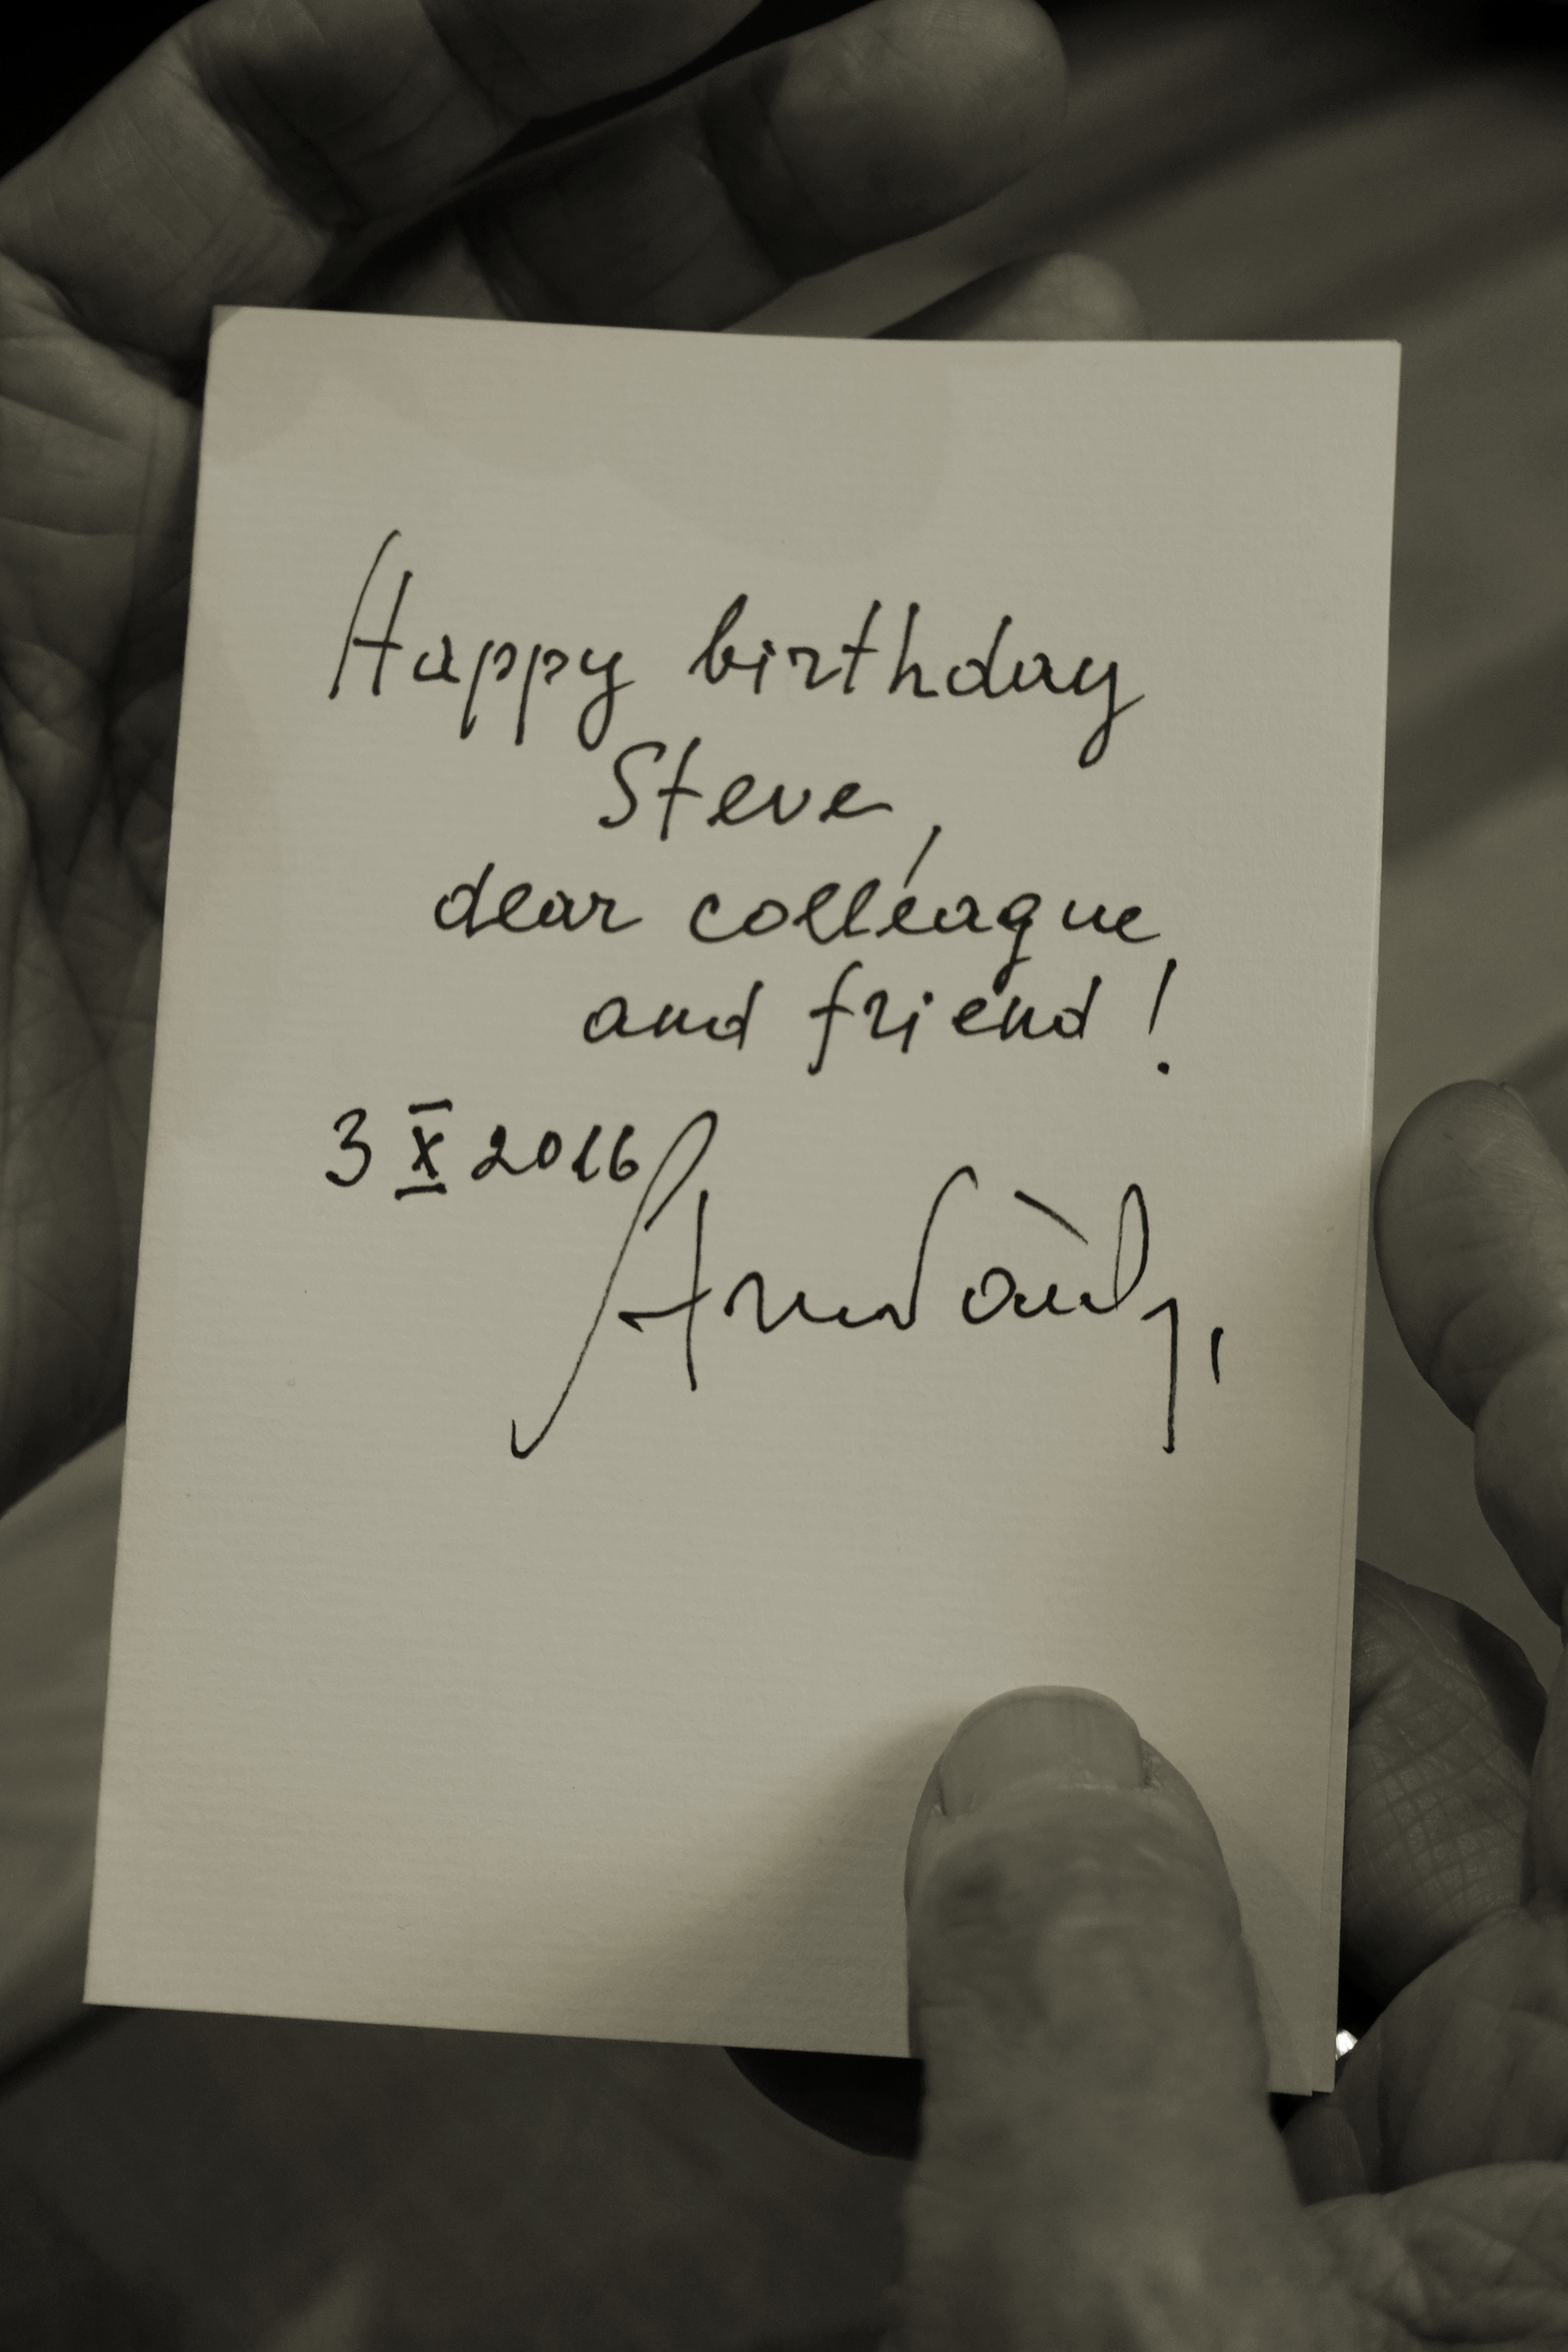 Happy birthday
Steve,
dear colleague
and friend!
3 X 2016